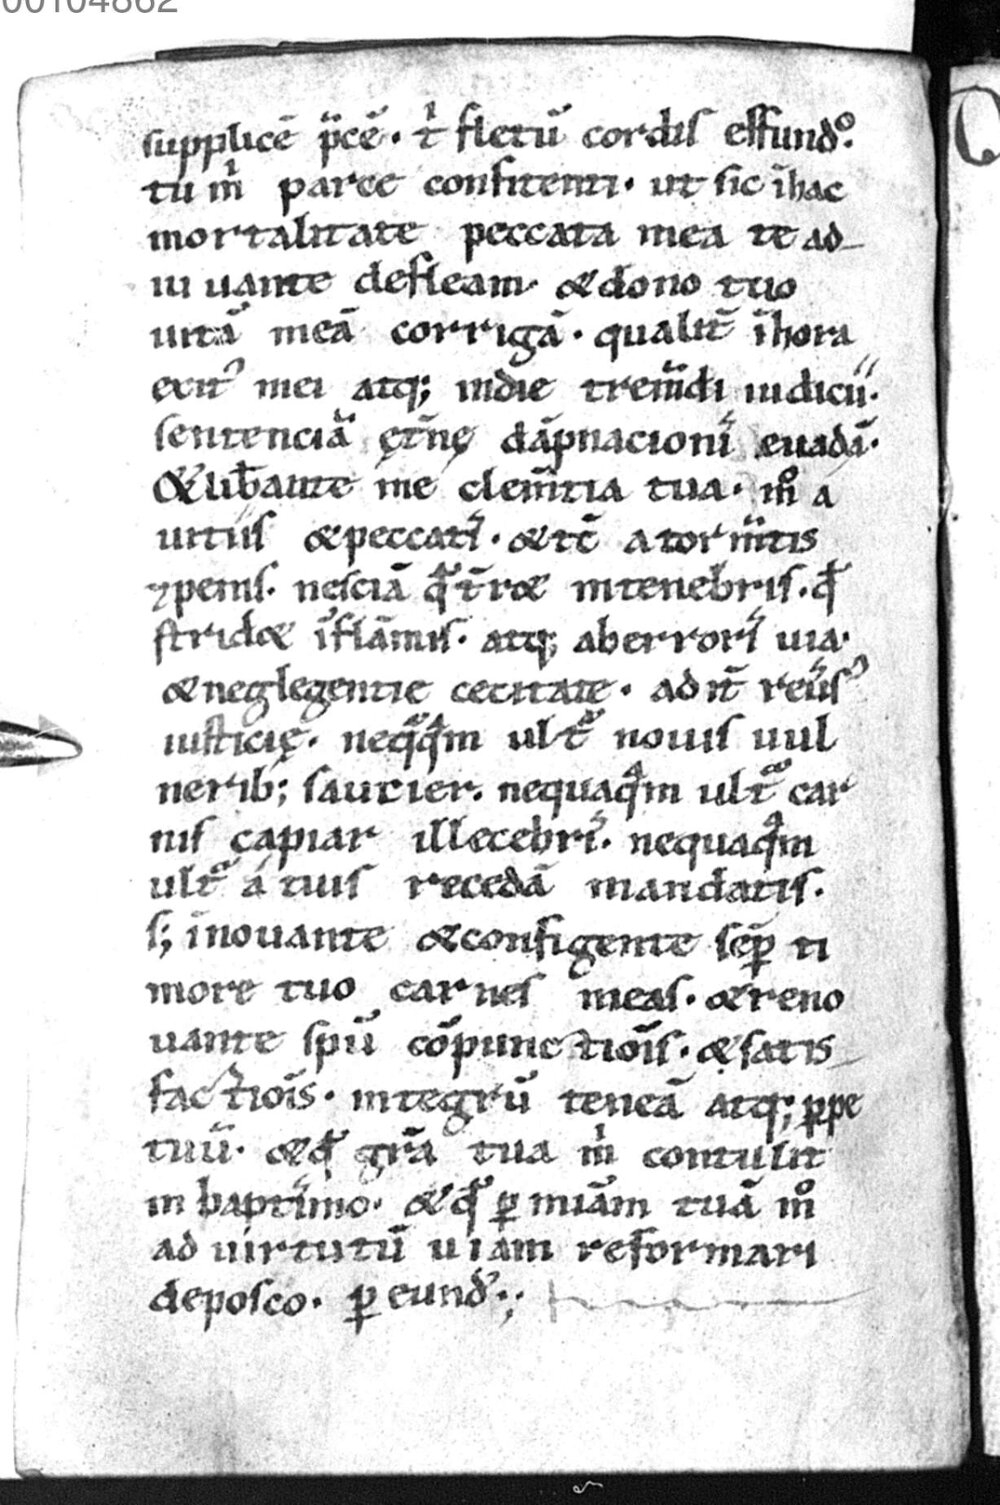 00104862
supplicē p̄cē. t̍ fletū cordis effundº.
tu m̍ parce confitenti. ut sic īhac
mortalitate peccata mea te ad
iu uante defleam. &dono tuo
uitā meā corrigā. qualit̄ īhora
exit᾽ mei atq; indie trem̄di iudicii.
sentenciā ęt̄nę dāpnacioni᾽ euadā.
&lib̄ante me clem̄tia tua. mº a
uitiis &peccati᾽. &tc̄ a torm̄tis
⁊penis. nesciā q̄ t̄r& intenebris. q̄
strid& īflāmis. atq; aberrori᾽ uia.
&neglegentie cecitate. ad it̄ reūs᾽
iusticię. neq̄q̄m ult̄ nouis uul
nerib; saucier. nequaq̄m ult̄ car
nis capiar illecebri᾽. nequaq̄m
ult̄ a tuis recedā mandatis.
s; īnouante &configente sēp ti
more tuo carnes meas. &reno
uante spū cōpunctiōis. &satis
factiōis. integrū teneā atq; ꝑpe
tuū. &q̄ gr̄a tua m̍ contulit
in bapti᾽mo. &q̄ ꝑ miām tuā mº
ad uirtutū uiam reformari
deposco. ꝑ eund᾽.